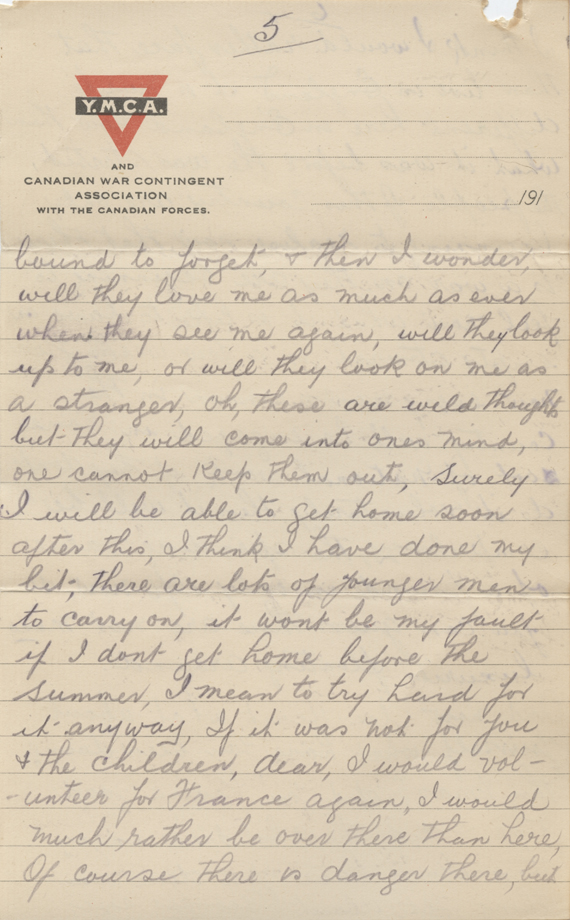 5
Y.M.C.A.
AND
CANADIAN WAR CONTINGENT
ASSOCIATION
WITH THE CANADIAN FORCES.
191
bound to forget, & then I wonder,
will they love me as much as ever
when they see me again, will they look
up to me, or will they look on me as
a stranger, oh, these are wild thoughts
but they will come into ones mind,
one cannot keep them out, surely
I will be able to get home soon
after this, I think I have done my
bit, there are lots of younger men
to carry on, it wont be my fault
if I dont get home before the
summer, I mean to try hard for
it anyway, If it was not for you
& the children, dear, I would vol-
-unteer for France again, I would
much rather be over there than here,
Of course there is danger there, but